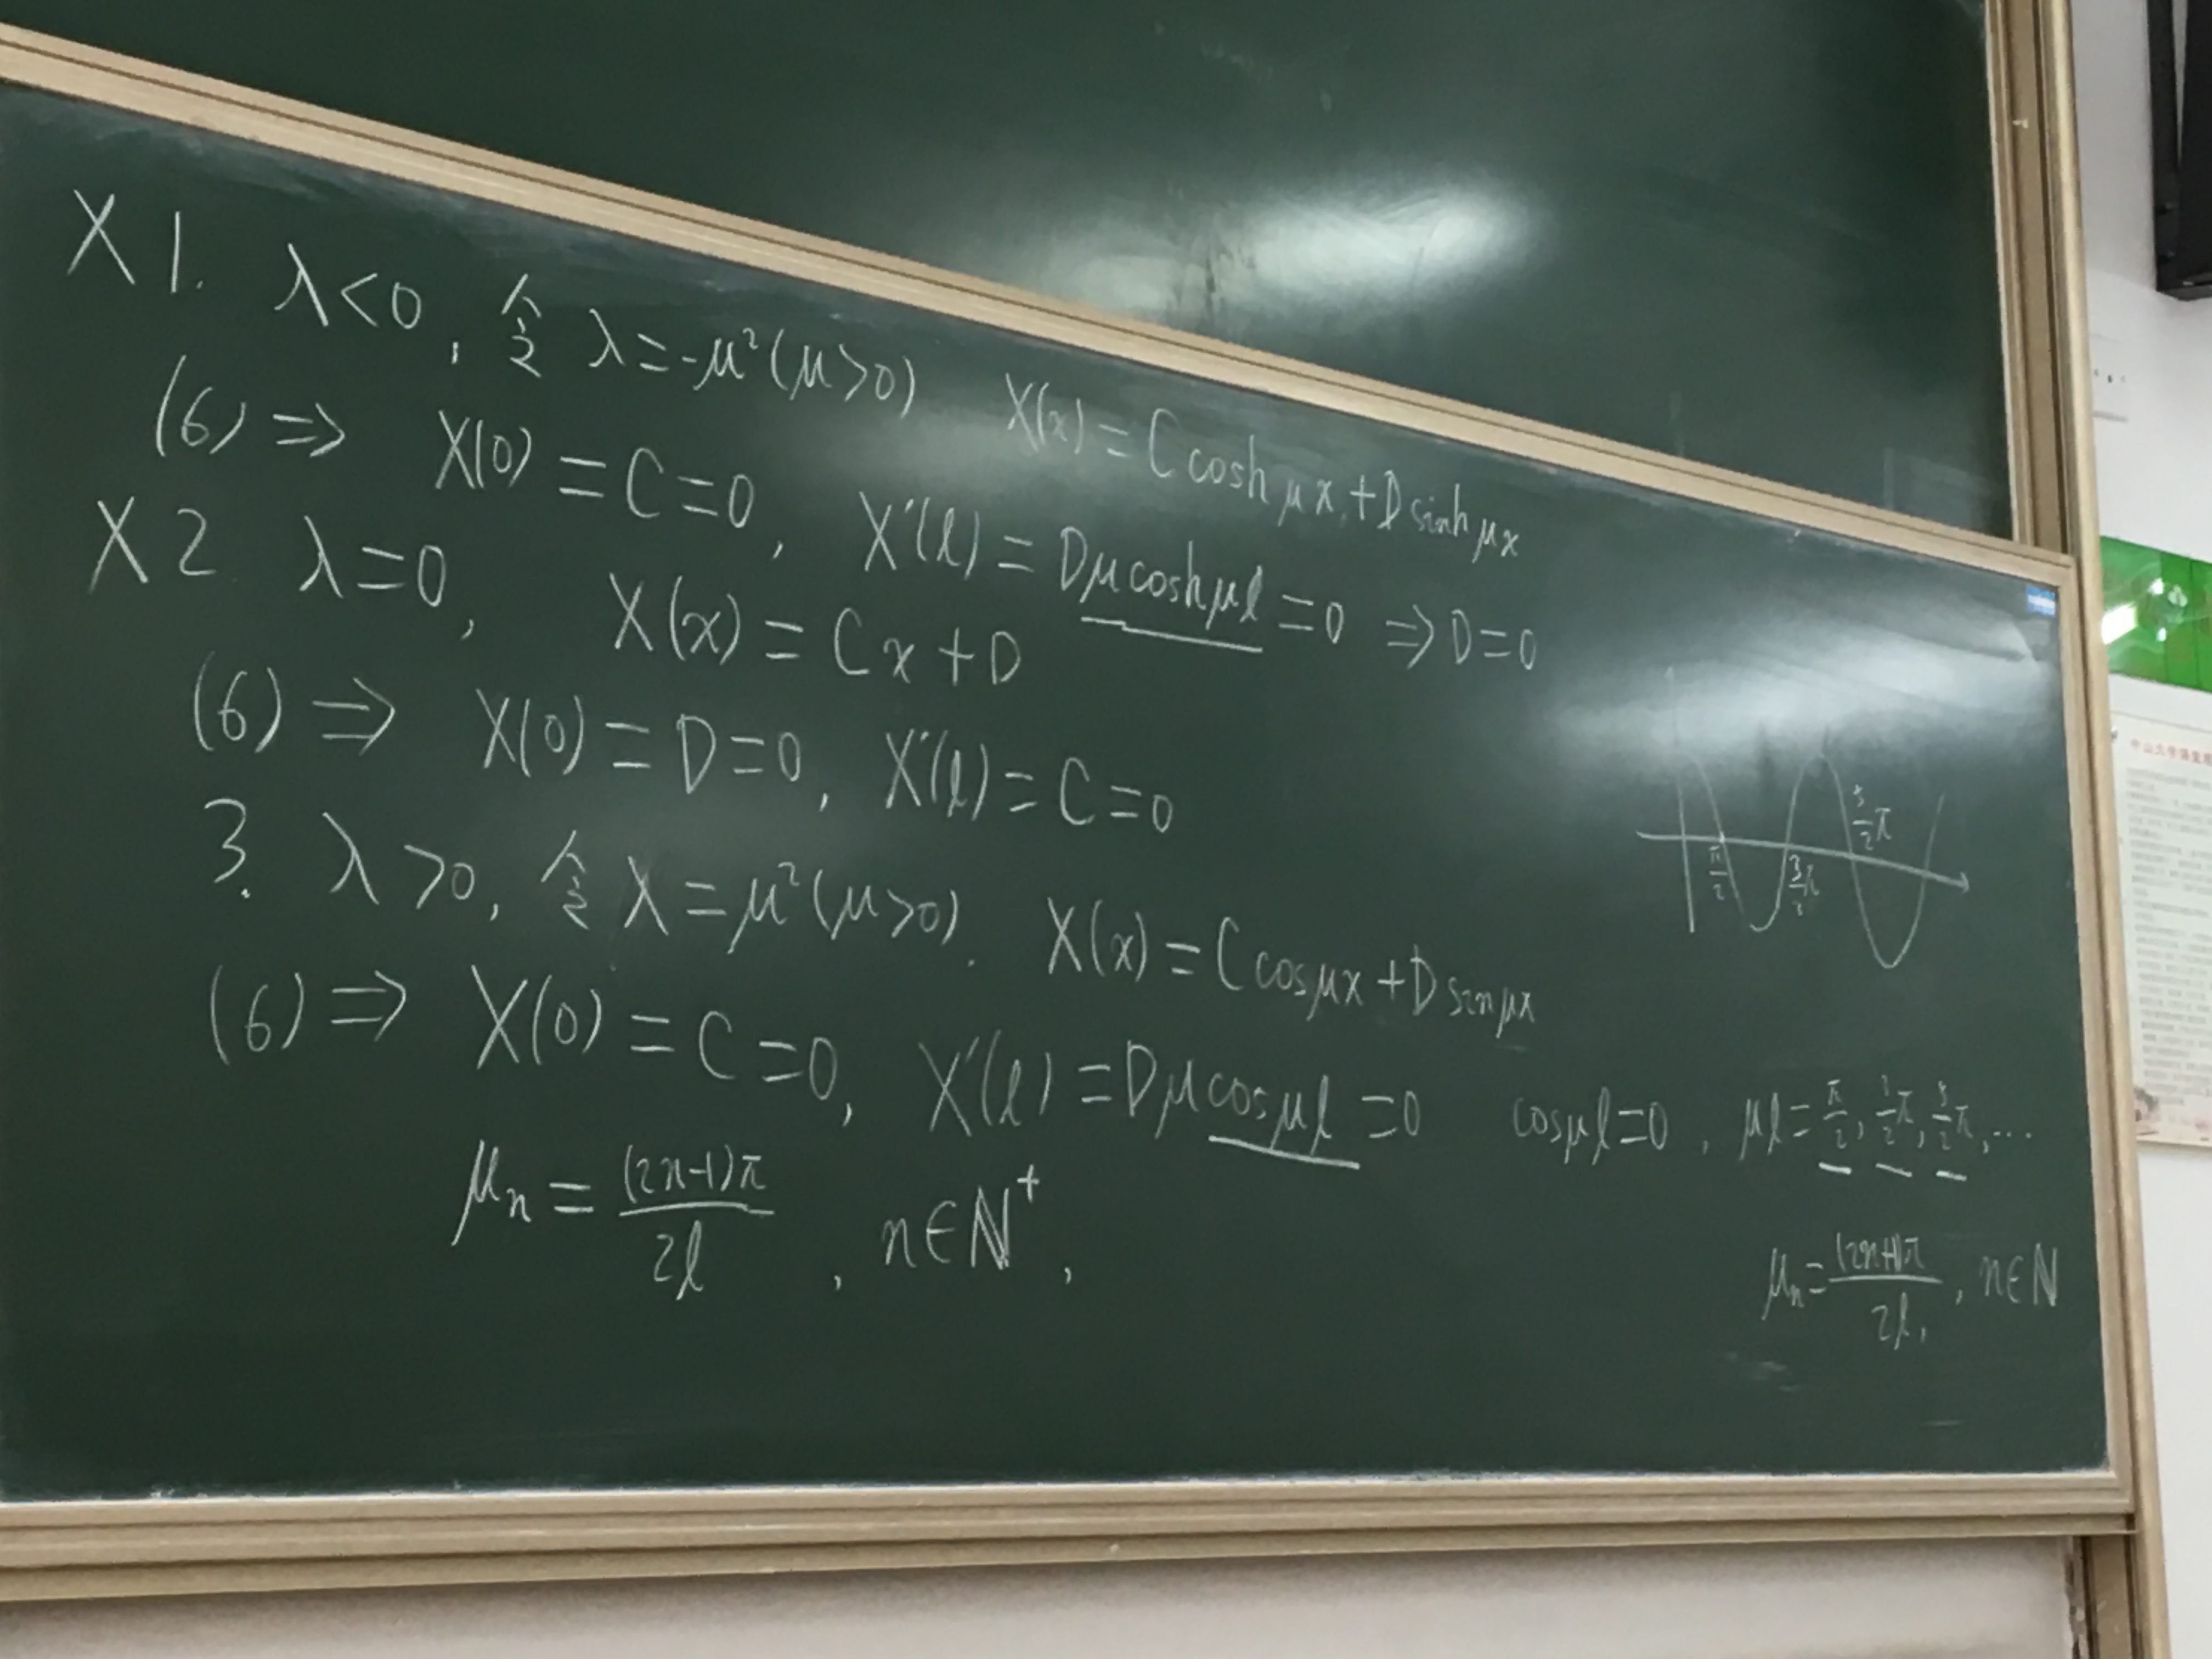 X 1. λ<0, 令 λ=-μ²(μ>0) X(x)=C cosh μx+D sinh μx
(6) ⇒ X(0)=C=0, X'(l)=Dμcoshμl=0 ⇒D=0
X 2. λ=0, X(x)=Cx+D
(6) ⇒ X(0)=D=0, X'(l)=C=0
3. λ>0, 令 X=μ²(μ>0). X(x)=C cosμx+D sinμx
(6) ⇒ X(0)=C=0, X'(l)=Dμcosμl=0 cosμl=0, μl=π/2, 3/2π, 5/2π, ...
μₙ=(2n-1)π/2l, n∈N⁺,
μₙ=(2n+1)π/2l, n∈N
π/2
3/2π
5/2π